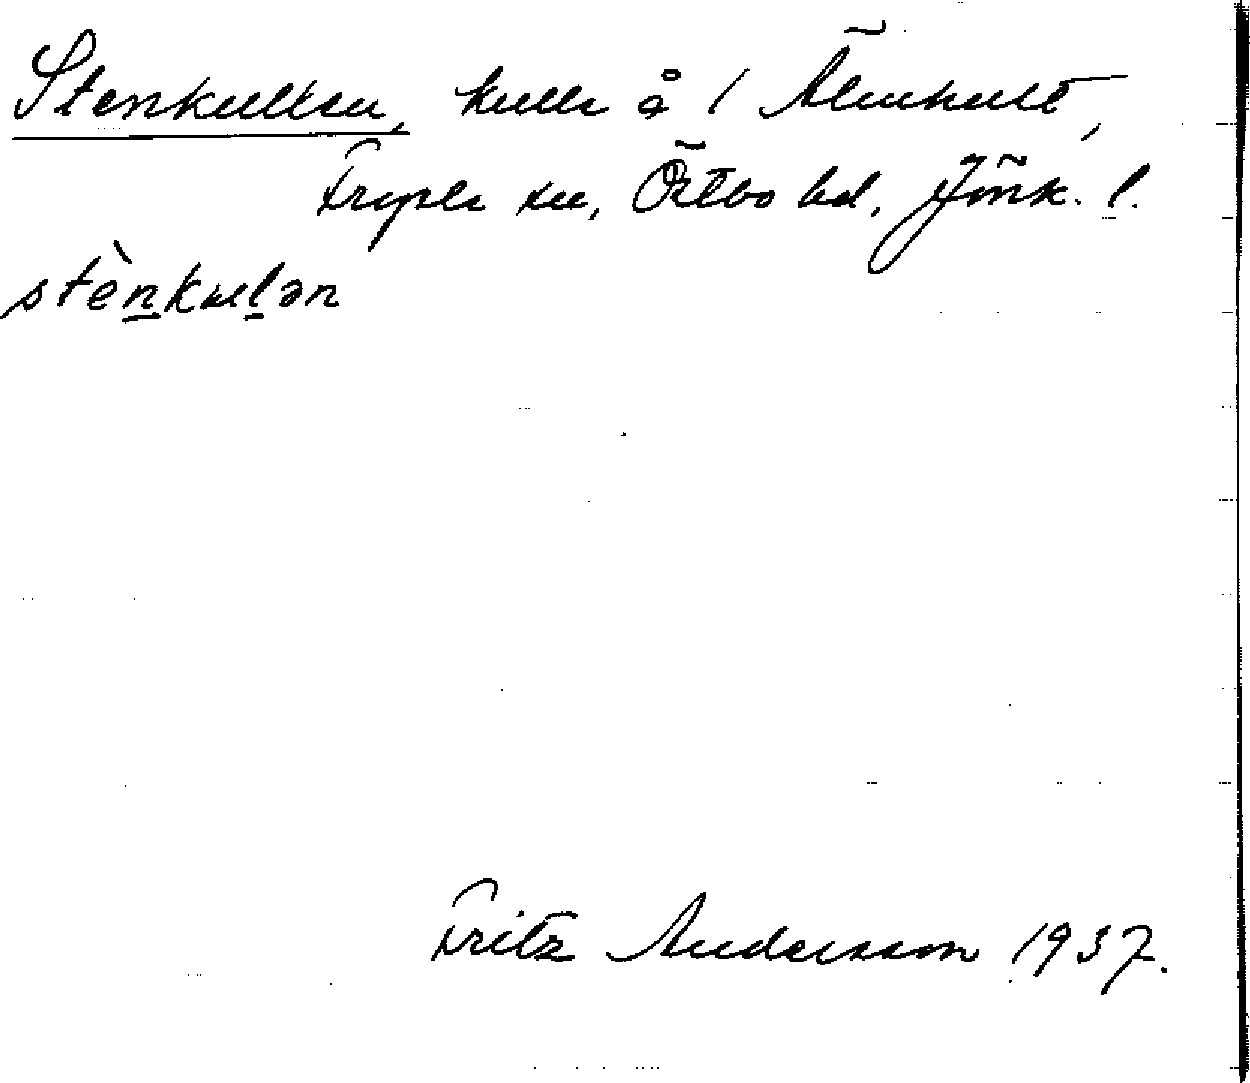 Stenkullen, kulle å 1 Älmhult,
Fryele sn, Östbo hd, Jönk. l.
stènkulən
Fritz Andersson 1937.